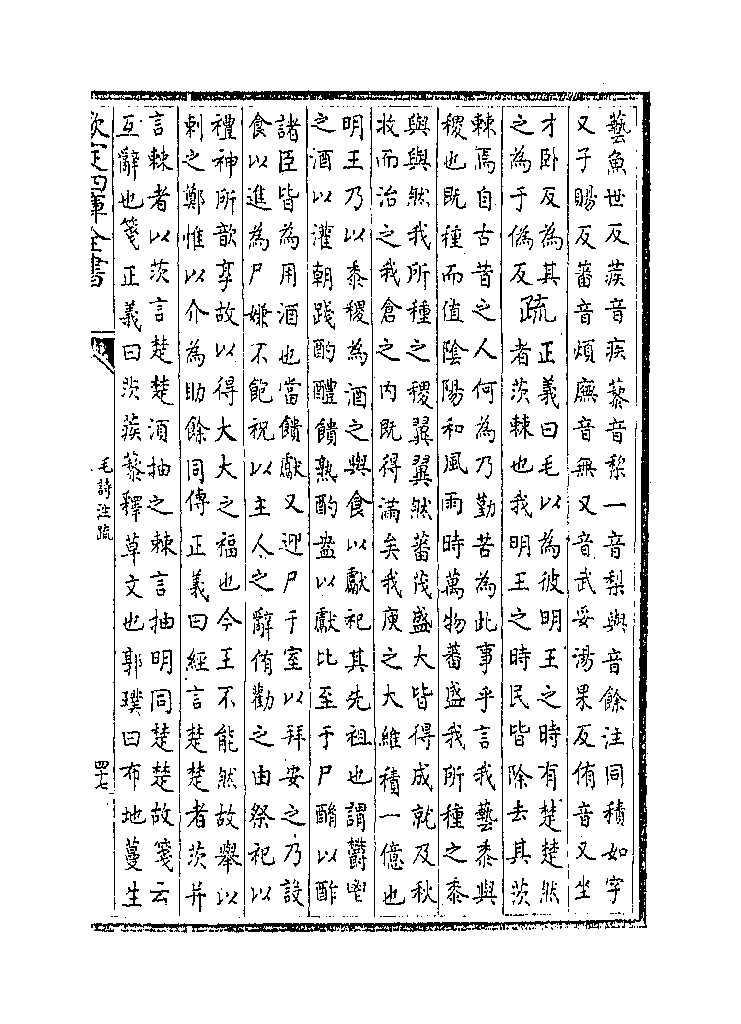 藝魚世反蒺音疾藜音棃一音梨與音餘注同積如字
又子賜反蕃音煩廡音無又音武妥湯果反侑音又坐
才卧反為其
之為于偽反
疏
正義曰毛以為彼明王之時有楚楚然
者茨棘也我明王之時民皆除去其茨
棘焉自古昔之人何為乃勤苦為此事乎言我藝黍與
稷也既種而值陰陽和風雨時萬物蕃盛我所種之黍
與與然我所種之稷翼翼然蕃茂盛大皆得成就及秋
收而治之我倉之內既得滿矣我庾之大維積一億也
明王乃以黍稷為酒之與食以獻祀其先祖也謂鬱鬯
之酒以灌朝踐酌醴饋熟酌盎以獻比至于尸酳以酢
諸臣皆為用酒也當饋獻又迎尸于室以拜安之乃設
食以進為尸嫌不飽祝以主人之辭侑勸之由祭祀以
禮神所歆享故以得大大之福也今王不能然故舉以
刺之鄭惟以介為助餘同傳正義曰經言楚楚者茨并
言棘者以茨言楚楚須抽之棘言抽明同楚楚故箋云
互辭也箋正義曰茨蒺藜釋草文也郭璞曰布地蔓生
欽定四庫全書
毛詩注疏
四七